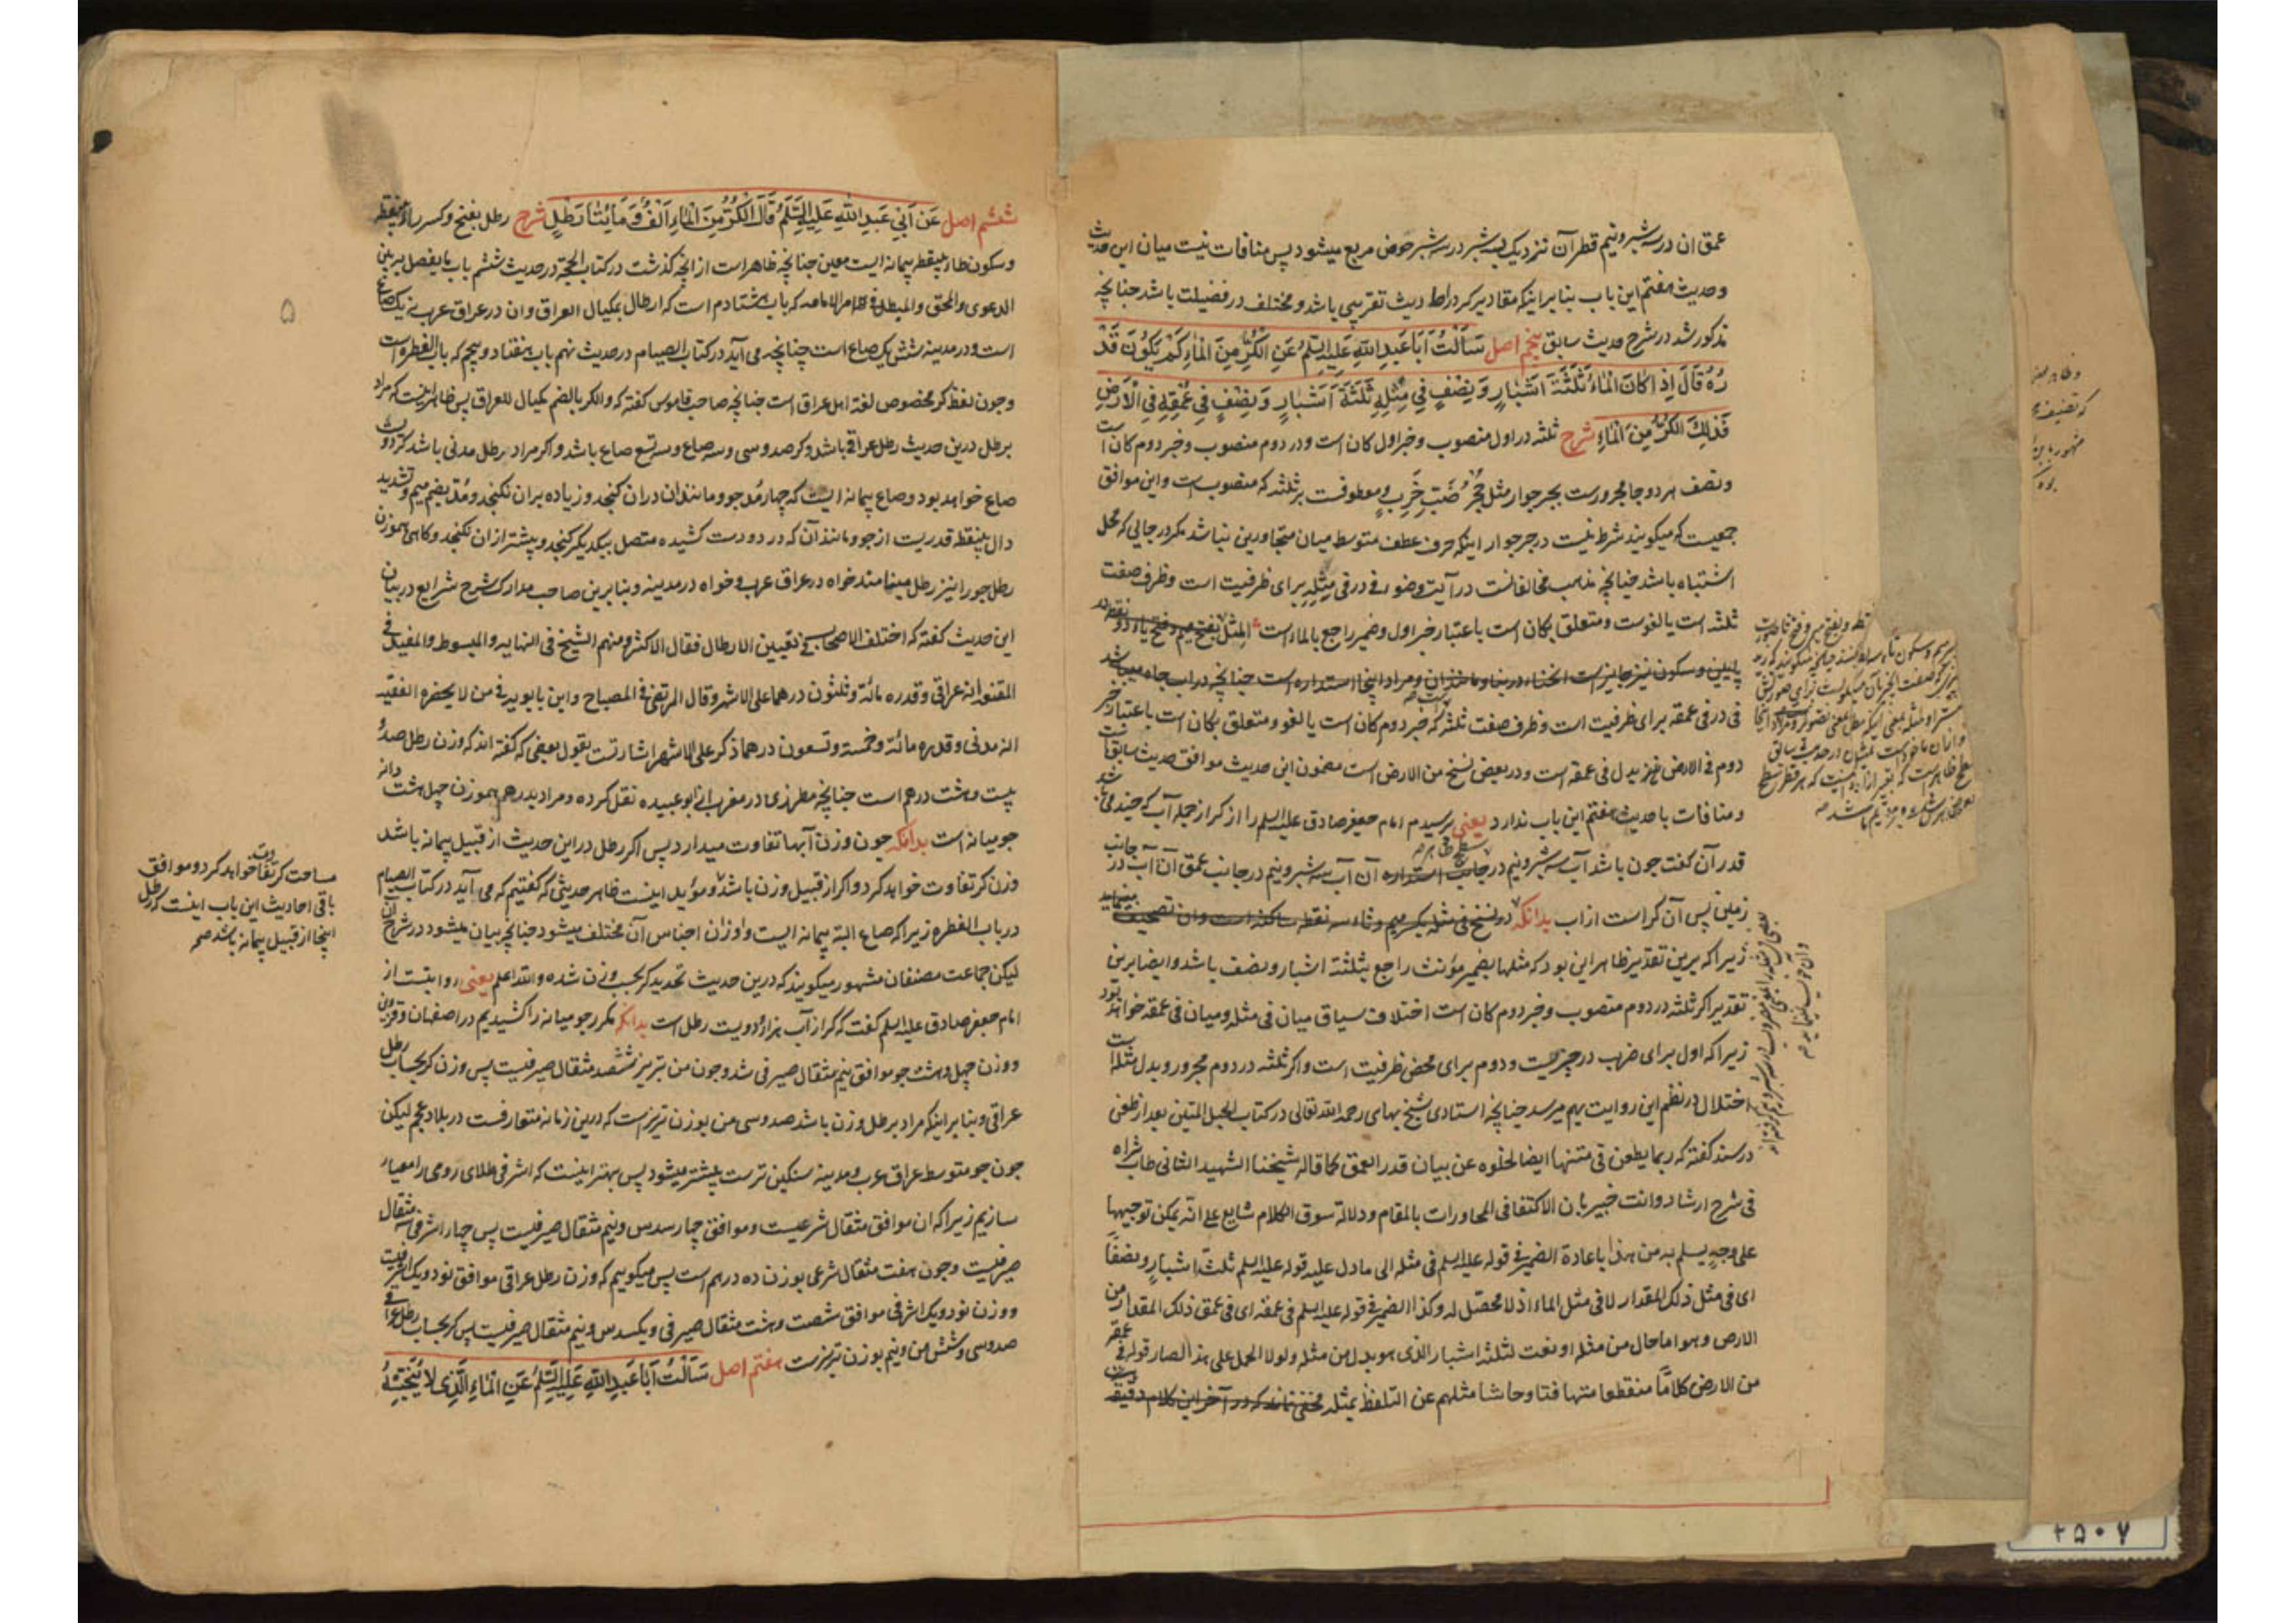 عمق ان در سه شبر و نیم قطر آن نزدیک بسه شبر در سه شبر حوض مربع میشود پس منافات نیست میان این حدیث
و حدیث هفتم این باب بنا بر اینکه مقادیر کر در احادیث تقریبی باشد و مختلف در فضیلت باشد چنانچه
مذکور شد در شرح حدیث سابق پنجم اصل سَأَلْتُ أَبَا عَبْدِ اللَّهِ عَلَيْهِ السَّلَمُ عَنِ الْكُرِّ مِنَ الْمَاءِ كَمْ يَكُونُ قَدْ
رُهُ قَالَ إِذَا كَانَ الْمَاءُ ثَلَثَةَ أَشْبَارٍ وَنِصْفٍ فِي مِثْلِهِ ثَلَثَةَ أَشْبَارٍ وَنِصْفٍ فِي عُمْقِهِ فِي الْأَرْضِ
فَذَلِكَ الْكُرُّ مِنَ الْمَاءِ شرح ثلثه در اول منصوب و خبر اول کان است و در دوم منصوب و خبر دوم کان است
و نصف هر دو جا مجرورست بجر جوار مثل جُحْرُ ضَبٍّ خَرِبٍ و معطوفست بر ثلثه که منصوبست و این موافق
جمعیست که میگویند شرط نیست در جر جوار اینکه حرف عطف متوسط میان متجاورین نباشد مگر در جایی که محل
اشتباه باشد چنانچه مذهب مخالفانست در آیت وضو و فی در فی مثله برای ظرفیت است و ظرف صفت
ثلثه است یا لغوست و متعلق بکان است باعتبار خبر اول و ضمیر راجع بالماء است المثل بفتح میم و فتح یاء دو نقطه در
پایین و سکون نیز جایز است انحناء در بنا و مانند ان و مراد اینجا استداره است چنانچه در اب چاه میباشد
فی در فی عمقه برای ظرفیت است و ظرف صفت ثلثه است که خبر دوم کان است یا لغو و متعلق بکان است باعتبار خبر
دوم فی الارض نیز بدل فی عمقه است و در بعض نسخ من الارض است مضمون این حدیث موافق حدیث سابق است
و منافات با حدیث هفتم این باب ندارد یعنی پرسیدم امام جعفر صادق علیه السلم را از کر از جمله آب که چند می باشد
قدر آن گفت چون باشد آب سه شبر و نیم در جانب استداره آن آب سه شبر و نیم در جانب عمق آن آب در جانب
زمین پس آن کر است از اب بدانکه در نسخ فی مثله بکسر میم و ثاء سه نقطه ساکنه است و ان تصحیف مینماید
زیرا که برین تقدیر ظاهر این بود که مثلها بضمیر مؤنث راجع بثلثة اشبار و نصف باشد و ایضا برین
تقدیر اگر ثلثه در دوم منصوب و خبر دوم کان است اختلاف سیاق میان فی مثله و میان فی عمقه خواهد بود
زیرا که اول برای ضرب در چیزیست و دوم برای محض ظرفیت است و اگر ثلثه در دوم مجرور و بدل مثله است
اختلال در نظم این روایت بهم میرسد چنانچه استادی شیخ بهای رحمه الله تعالی در کتاب الحبل المتین بعد از طعن
در سند گفته که ربما یطعن فی متنها ایضا لخلوه عن بیان قدر العمق کما قاله شیخنا الشهید الثانی طاب ثراه
فی شرح ارشاد و انت خبیر بان الاکتفا فی المحاورات بالمقام و دلالة سوق الکلام شایع علی انه یمکن توجیهها
علی وجهٍ یسلم به من هذا باعادة الضمیر فی قوله علیه السلم فی مثله الی ما دل علیه قوله علیه السلم ثلثة اشبارٍ و نصفاً
ای فی مثل ذلک المقدار لا فی مثل الماء اذ لا محصّل له و کذا الضمیر فی قوله علیه السلم فی عمقه ای فی عمق ذلک المقدار من
الارض و هو اما حال من مثله او نعت لثلثة اشبار الذی هو بدل من مثله و لولا الحمل علی هذا لصار قوله فی عمقه
من الارض کلاماً منقطعا متهافتا و حاشا مثلهم عن التلفظ بمثله مخفی نماند که در آخر این کلام دقیقه
ششم اصل عَنْ أَبِي عَبْدِ اللَّهِ عَلَيْهِ السَّلَمُ قَالَ الْكُرُّ مِنَ الْمَاءِ أَلْفٌ وَمَائَتَا رَطْلٍ شرح رطل بفتح و کسر راء بینقطه
و سکون طاء بینقطه پیمانه ایست معین چنانچه ظاهر است از انچه گذشت در کتاب الحجة در حدیث ششم باب ما یفصل به بین
الدعوی و المحق و المبطل فی امر الامامه که باب هشتادم است که ارطال بمکیال العراق و ان در عراق عرب نه یک صاع
است و در مدینه شش یک صاع است چنانچه می آید در کتاب الصیام در حدیث نهم باب هفتاد و پنجم که باب الفطره است
و چون لفظ کر مخصوص لغة اهل عراق است چنانچه صاحب قاموس گفته که و الکر بالضم مکیال للعراق پس ظاهر اینست که مراد
برطل درین حدیث رطل عراقی باشد و کر صد و سی و سه صاع و سه تسع صاع باشد و اگر مراد برطل مدنی باشد کر دویست
صاع خواهد بود و صاع پیمانه ایست که چهار مُد جو و مانند ان دران گنجد و زیاده بران نگنجد و مُدّ بضم میم و تشدید
دال بینقطه قدریست از جو و مانند آن که در دو دست کشیده متصل بیکدیگر گنجد و بیشتر از ان نگنجد و گاهی هموزن
رطل جو را نیز رطل مینامند خواه در عراق عرب و خواه در مدینه و بنا برین صاحب مدارک شرح شرایع در بیان
این حدیث گفته که اختلف الاصحاب فی تعیین الارطال فقال الاکثر و منهم الشیخ فی النهایه و المبسوط و المفید فی
المقنعه انه عراقی و قدره مائة و ثلثون درهما علی الاشهر و قال المرتضی فی المصباح و ابن بابویه فی من لا یحضره الفقیه
انه مدنی و قدره مائة و خمسة و تسعون درهما ذکر علی الاشهر اشارتست بقول بعضی که گفته اند که وزن رطل صد و
بیست و هشت درهم است چنانچه مطرزی در مغرب از ابو عبیده نقل کرده و مراد بدرهم هموزن چهل هشت دانه
جو میانه است بدانکه چون وزن آبها تفاوت میدارد پس اگر رطل در این حدیث از قبیل پیمانه باشد
وزن کر تفاوت خواهد کرد و اگر از قبیل وزن باشد و مؤید اینست ظاهر حدیثی که گفتیم که می آید در کتاب الصیام
در باب الفطره زیرا که صاع البته پیمانه ایست و اوزان اجناس آن مختلف میشود چنانچه بیان میشود در شرح آن
لیکن جماعت مصنفان مشهور میگویند که درین حدیث تحدید کر بحسب وزن شده و الله اعلم یعنی روایتست از
امام جعفر صادق علیه السلم گفت که کر از آب هزار و دویست رطل است بدانکه مکرر جو میانه را کشیدیم در اصفهان و قزوین
و وزن چهل و هشت جو موافق نیم مثقال صیرفی شد و چون من تبریز ششصد مثقال صیرفیست پس وزن کر بحساب رطل
عراقی و بنا بر اینکه مراد برطل وزن باشد صد و سی من بوزن تبریز است که درین زمانه متعارفست در بلاد عجم لیکن
چون جو متوسط عراق عرب و مدینه سنگین ترست بیشتر میشود پس بهتر اینست که اشرفی طلای رومی را معیار
سازیم زیرا که ان موافق مثقال شرعیست و موافق چهار سدس و نیم مثقال صیرفیست پس چهار اشرفی سه مثقال
صیرفیست و چون هفت مثقال شرعی بوزن ده درهم است پس میگوییم که وزن رطل عراقی موافق نود و یک اشرفیست
و وزن نود و یک اشرفی موافق شصت و هشت مثقال صیرفی و یکسدس و نیم مثقال صیرفیست پس کر بحساب رطل عراقی
صد و سی و شش من و نیم بوزن تبریزست هفتم اصل سَأَلْتُ أَبَا عَبْدِ اللَّهِ عَلَيْهِ السَّلَمُ عَنِ الْمَاءِ الَّذِي لَا يُنَجِّسُهُ
مساحت کر تفاوت خواهد کرد و موافق
باقی احادیث این باب اینست که رطل
اینجا از قبیل پیمانه باشد صح
۵
۲۵۰۷